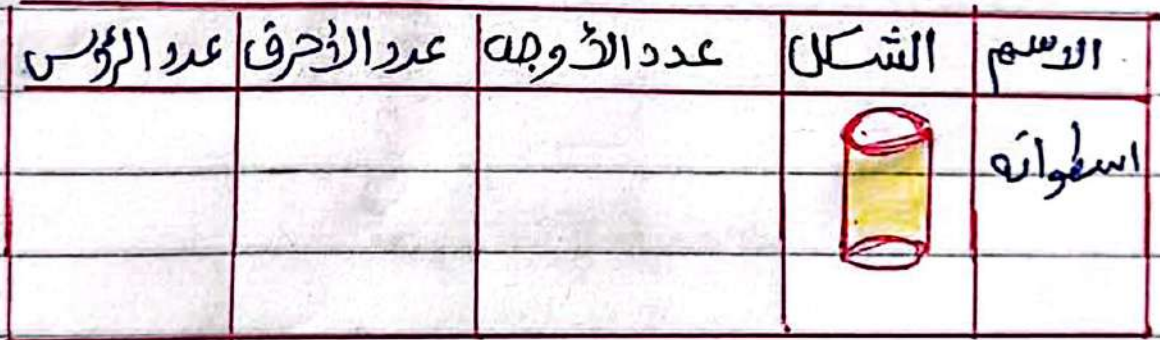 الاسم الشكل عدد الأوجه عدد الأحرف عدد الرؤس
اسطوانه